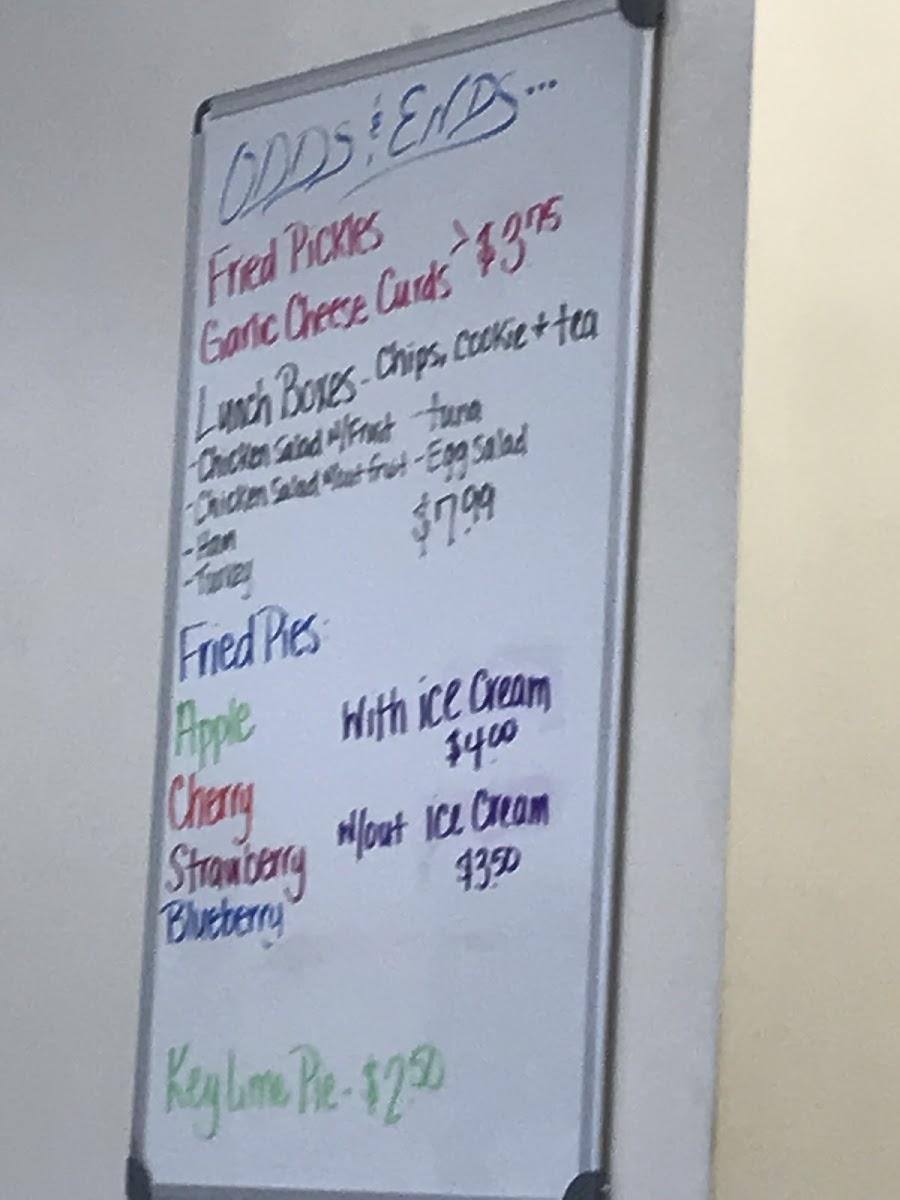 ODDS & ENDS...
Fried Pickles
Garlic Cheese Curds > $3.75
Lunch Boxes - Chips, cookie + tea
- Chicken Salad w/Fruit - tuna
- Chicken Salad w/out fruit - Egg Salad
- Ham
$7.99
- Turkey
Fried Pies:
Apple
With ice Cream
$4.00
Cherry
w/out ice Cream
Strawberry
$3.50
Blueberry
Key Lime Pie - $2.50